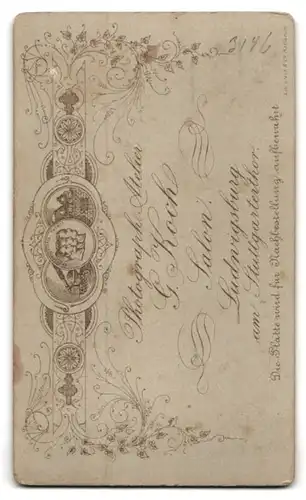 3146
Photograph. Atelier
G. Koch
Salon:
Ludwigsburg
am Stuttgarterthor.
Die Platte wird für Nachbestellung aufbewahrt